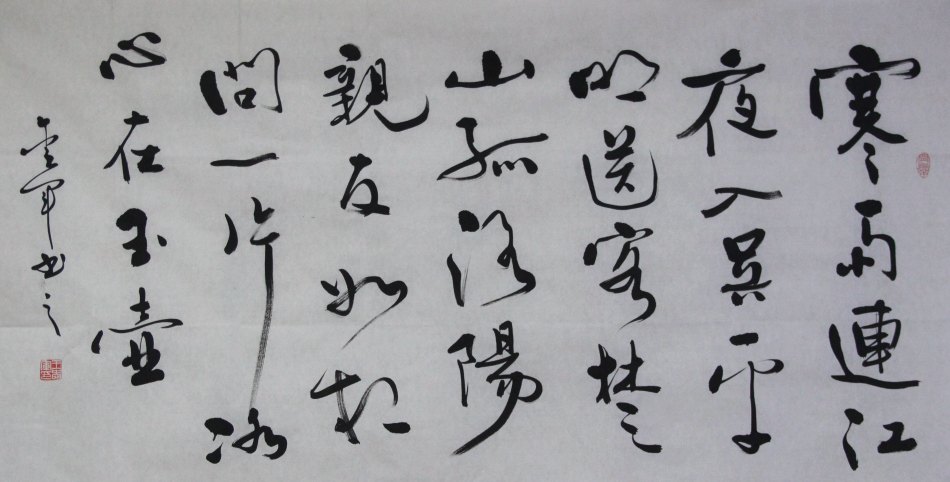 寒雨連江
夜入吳平
明送客楚
山孤洛陽
親友如相
問一片冰
心在玉壺
軍书之